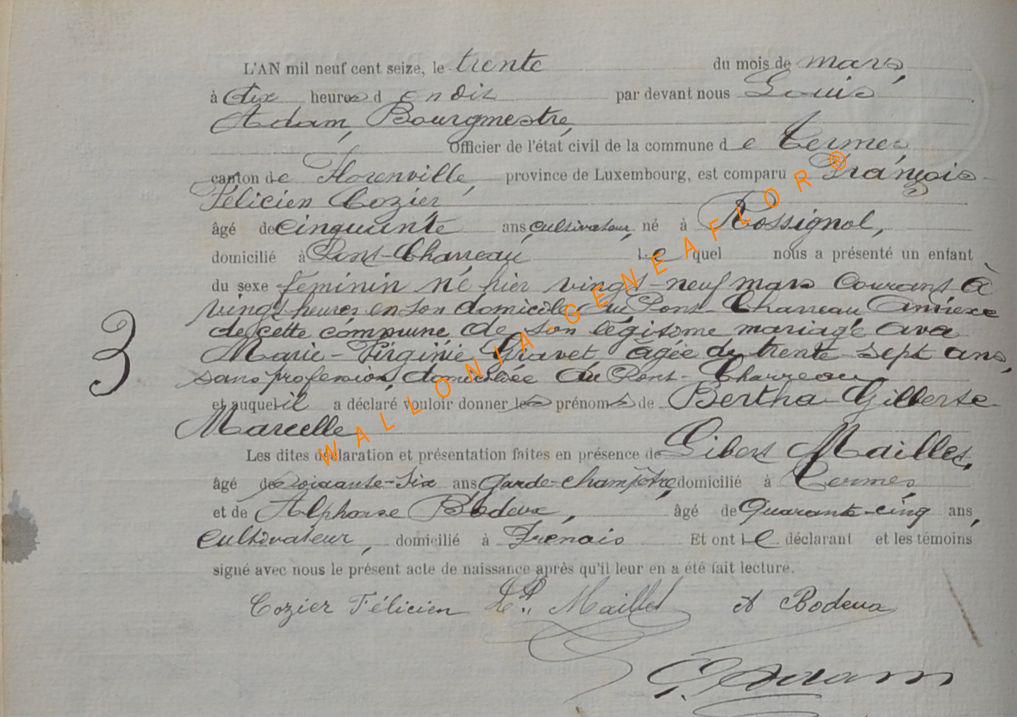 L'AN mil neuf cent seize, le trente du mois de mars,
à dix heures d en dis par devant nous Louis
Adam, Bourgmestre,
Officier de l'état civil de la commune d e Termes
canton de Florenville, province de Luxembourg, est comparu François
Félicien Cozier
âgé de cinquante ans, cultivateur, né à Rossignol,
domicilié à Pont-Charreau, l e quel nous a présenté un enfant
du sexe féminin né hier vingt-neuf mars courant à
vingt heures en son domicile au Pont-Charreau annexe
de cette commune de son légitime mariage avec
3
Marie-Virginie Gravet âgée de trente-sept ans,
sans profession, domiciliée au Pont-Charreau
et auquel il a déclaré vouloir donner les prénoms de Bertha-Gilberte
Marcelle
Les dites déclaration et présentation faites en présence de Mailles,
âgé de soixante-six ans Garde-champêtre, domicilié à Termes
et de Alphonse Bodeux, âgé de quarante-cinq ans,
cultivateur, domicilié à Frenois Et ont l e déclarant et les témoins
signé avec nous le présent acte de naissance après qu'il leur en a été fait lecture.
Cozier Félicien Maillet A Bodeux
Adam
WALLONIA-GENEAFLOR®